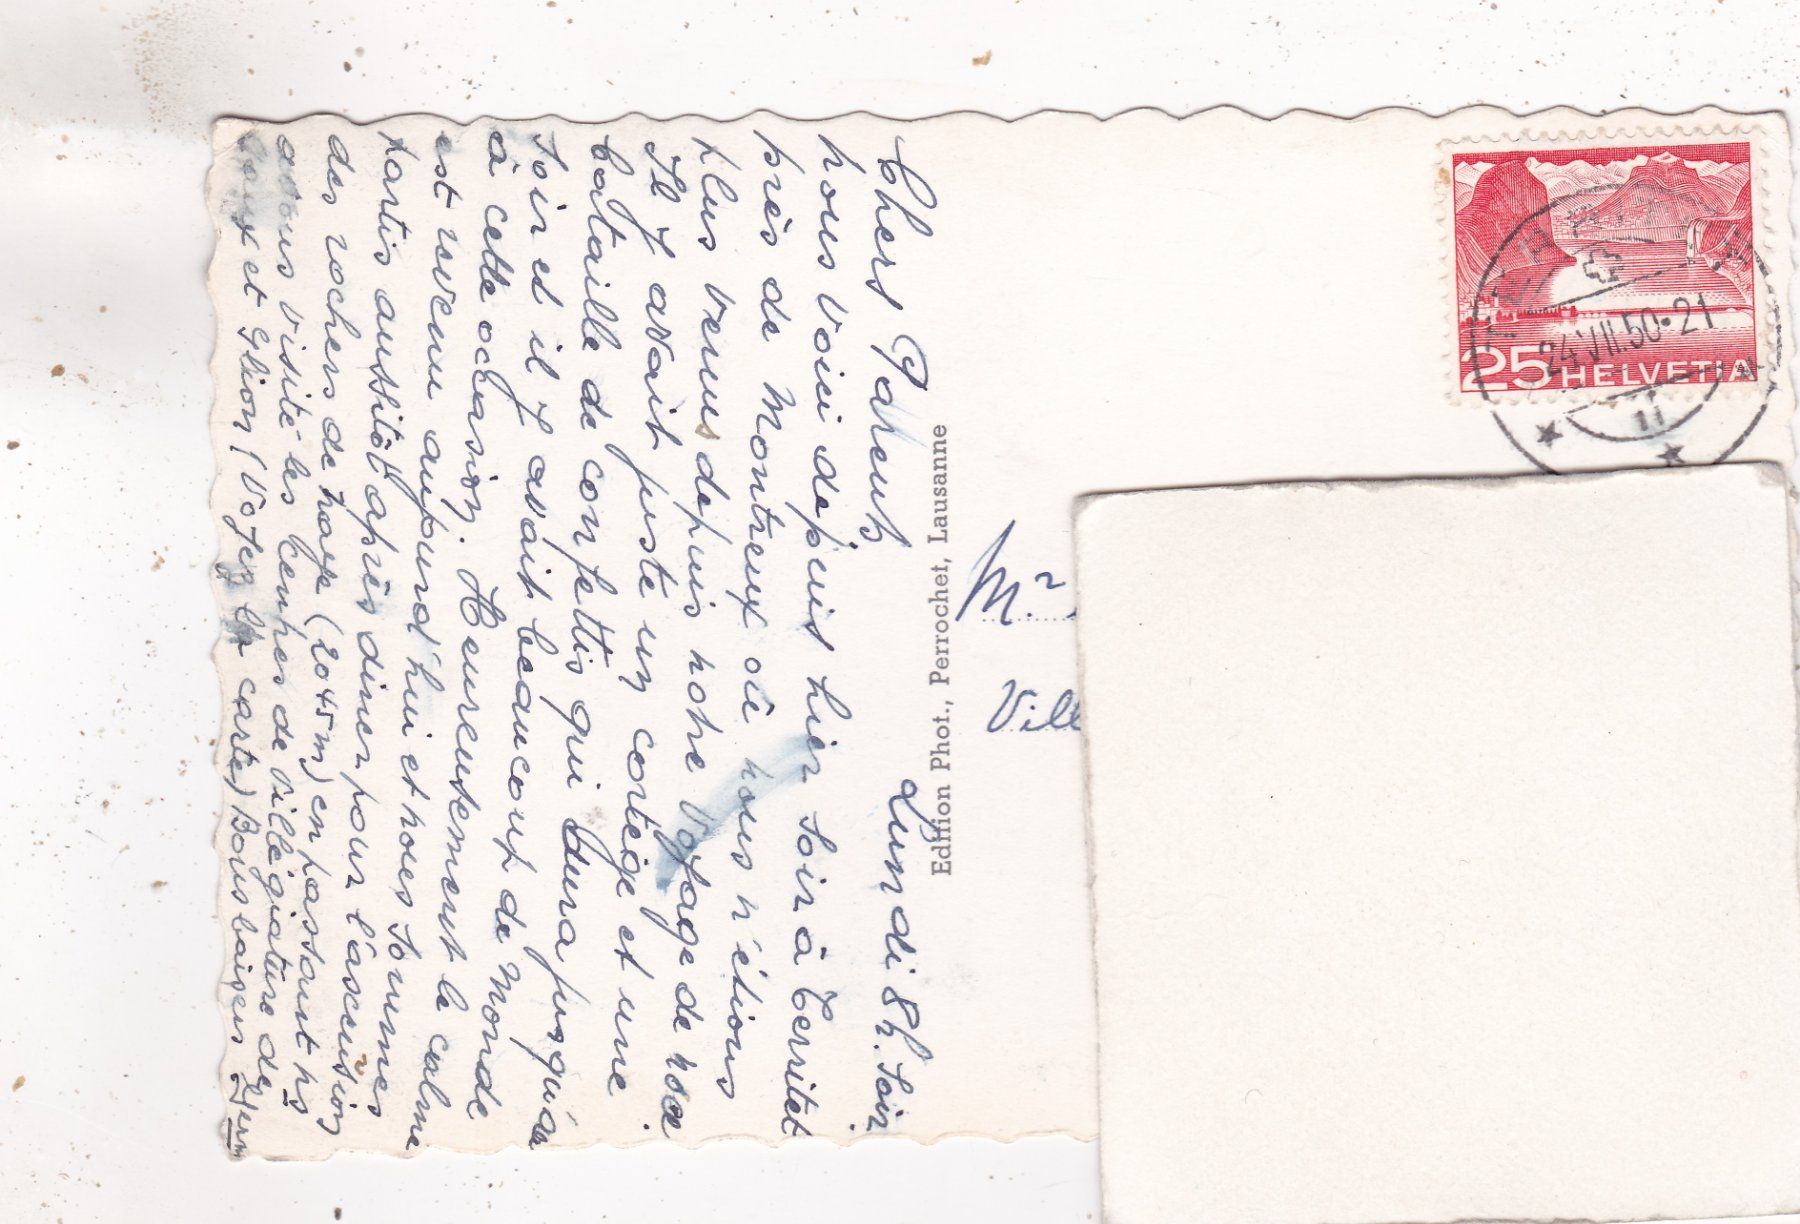 Chers Parents Lundi 8h. Soir.
nous voici depuis hier Soir à Territet
près de Montreux où nous n'étions
plus venus depuis notre Voyage de noce.
Il y avait juste un cortège et une
bataille de confettis qui dura jusqu'au
Soir et il y avait beaucoup de Monde
à cette occasion. Heureusement le calme
est revenu aujourd'hui et nous sommes
partis aussitôt après diner pour l'ascension
des rochers de naye (2045 m) en passant ns
avons visité les Centres de Villégiature de
Caux et Glion (Voyez la carte) Bons baisers
Edition Phot., Perrochet, Lausanne
Mr
Vill
25 HELVETIA
24.VII.50-21
11